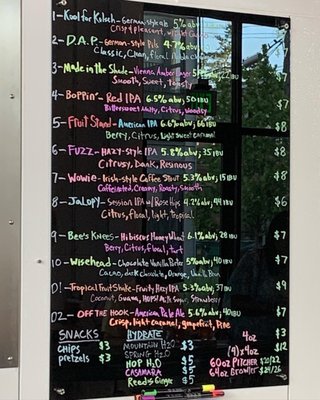 1- Kool for Kolsch - German-style ale 5% abv
Crisp, pleasant,
2- D.A.P. - German-style Pils 4.7% abv
Classic, Clean, floral
3- Made in the Shade - Vienna Amber Lager
Smooth, Sweet, toasty
$7
4- Boppin' - Red IPA 6.5% abv, 50 IBU
Bittersweet Malty, Citrus, Woodsy
$8
5- Fruit Stand - American IPA 6.6% abv, 66 IBU
Berry, Citrus, Light Sweet Caramel
$8
6- FUZZ - Hazy-style IPA 5.8% abv, 35 IBU
Citrusy, Dank, Resinous
$8
7- Wowie - Irish-style Coffee Stout 5.3% abv, 15 IBU
Caffeinated, Creamy, Roasty, Smooth
$8
8- Jalopy - Session IPA w/ Rose Hips 4.2% abv, 44 IBU
Citrus, floral, light, tropical
$7
9- Bee's Knees - Hibiscus Honey Wheat 6.1% abv, 28 IBU
Berry, Citrus, floral, tart
$7
10- Wisehead - Chocolate Vanilla Porter 5% abv, 40 IBU
Cacao, dark Chocolate, Orange, Vanilla Bean
$7
D1- Tropical Fruit Shake - Fruity Hazy IPA 5.3% abv, 37 IBU
Coconut, Guava, Strawberry
$9
D2- OFF THE HOOK - American Pale Ale 5.6% abv, 40 IBU
Crisp, light caramel, grapefruit, Pine
$7
SNACKS
chips $3
pretzels $3
HYDRATE
MOUNTAIN H2O $2
SPRING H2O $3
HOP H2O $5
CASAMARA $5
Reed's Ginger $5
4oz $3
(4) x 4oz $12
60oz PITCHER $20/22
64oz Growler $24/26